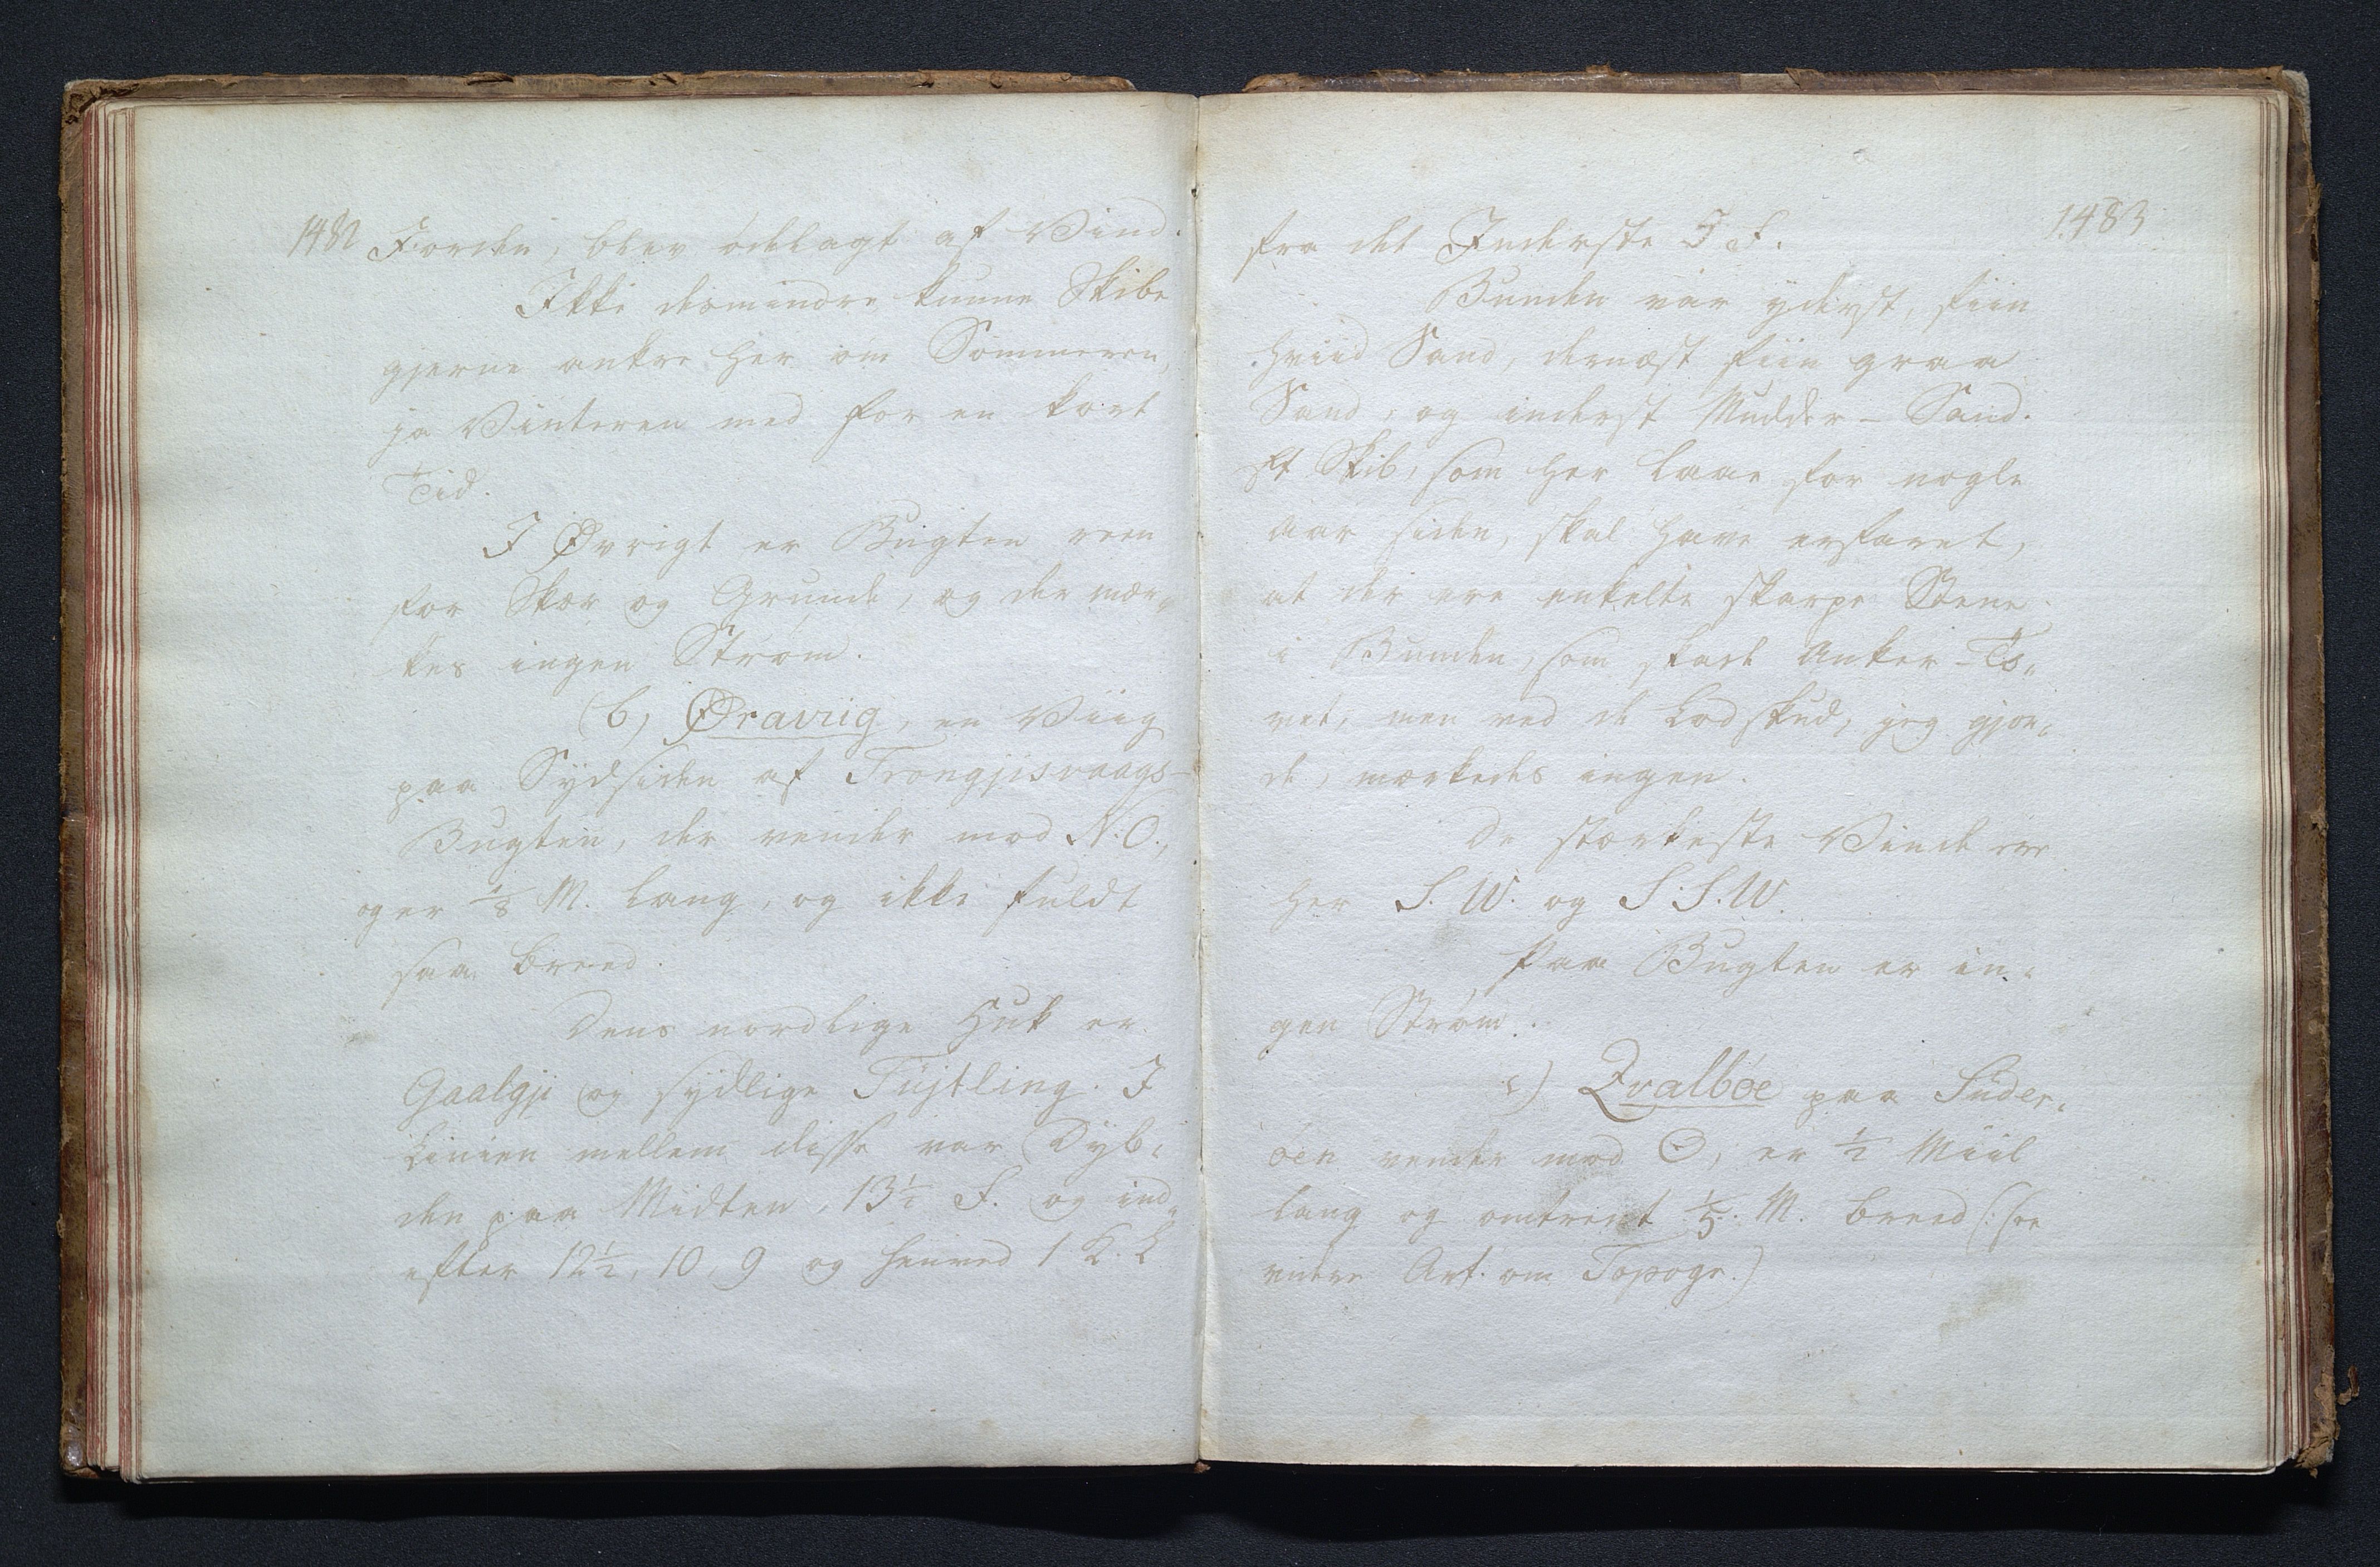 1482
Jorden, blev ödelagt af Vind.
Ikke desmindre kunne Skibe
gjerne ankre her om Sommeren,
ja Vinteren med for en kort
Tid.
I Øvrigt er Bugten reen
for Skær og Grunde, og der mær„
kes ingen Strøm.
(b) Øravvig, en Viig
paa Sydsiden af Trongjisvaags-
Bugten, der vender mod N.O.,
og er 1/8 M. lang, og ikke fuldt
saa breed.
Dens nordlige Huk er
Gaalgji og sydlige Tujtling. I
Linien mellem disse var Dyb„
den paa Midten, 13½ F. og ind„
efter 12½, 10, 9 og henved 1 K. L
1483
fra det Inderste 7 F.
Bunden var yderst, fiin
hviid Sand, dernæst fiin graa
Sand, og inderst Mudder-Sand.
Et Skib, som her laae for nogle
Aar siden, skal have erfaret,
at der ere enkelte skarpe Stene
i Bunden, som skade Anker-To„
vet, men ved de Lodskud, jeg gjor„
de, mærkedes ingen.
De stærkeste Vinde ere
her S.W. og S.S.W.
Paa Bugten er in„
gen Strøm.
c) Qvalböe paa Suder„
öen vender mod O, er ½ Miil
lang og omtrent 1/5 M. breed (: see
videre Art. om Topogr.)